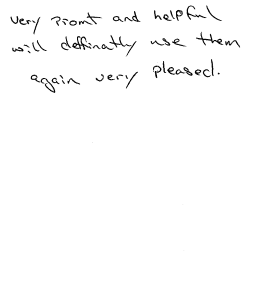 very Promt and helpful
will deffinatly use them
again very pleased.